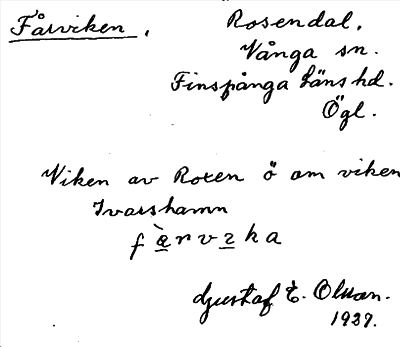 Fårviken, Rosendal,
Vånga sn.
Finspånga läns hd.
Ögl.
Viken av Roxen ö om viken
Ivarshamn
Gustaf E. Olsson.
1937.